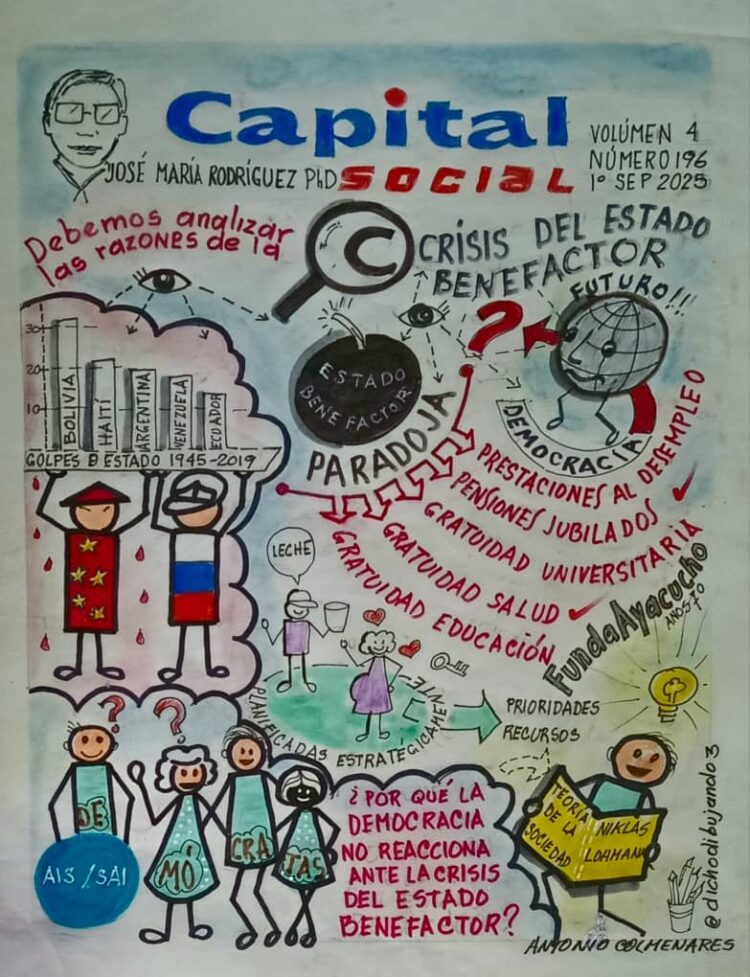 Capital
SOCIAL
JOSÉ MARÍA RODRÍGUEZ PhD
VOLÚMEN 4
NÚMERO 196
1º SEP 2025
Debemos analizar
las razones de la
C
CRÍSIS DEL ESTADO
BENEFACTOR
FUTURO!!!
?
30
20
10
BOLIVIA
HAITÍ
ARGENTINA
VENEZUELA
ECUADOR
GOLPES D ESTADO 1945-2019
ESTADO
BENEFACTOR
PARADOJA
DEMOCRACIA
PRESTACIONES AL DESEMPLEO
PENSIONES JUBILADOS
GRATUIDAD UNIVERSITARIA
GRATUIDAD SALUD
GRATUIDAD EDUCACIÓN
FundaAyacucho
AÑOS 70
LECHE
PLANIFICADAS ESTRATÉGICAMENTE
PRIORIDADES
RECURSOS
? ?
DE
MÓ
CRA
TAS
¿POR QUÉ LA
DEMOCRACIA
NO REACCIONA
ANTE LA CRISIS
DEL ESTADO
BENEFACTOR?
TEORIA
DE LA
SOCIEDAD
NIKLAS
LOHMANN
@dichodibujando3
ANTONIO COLMENARES